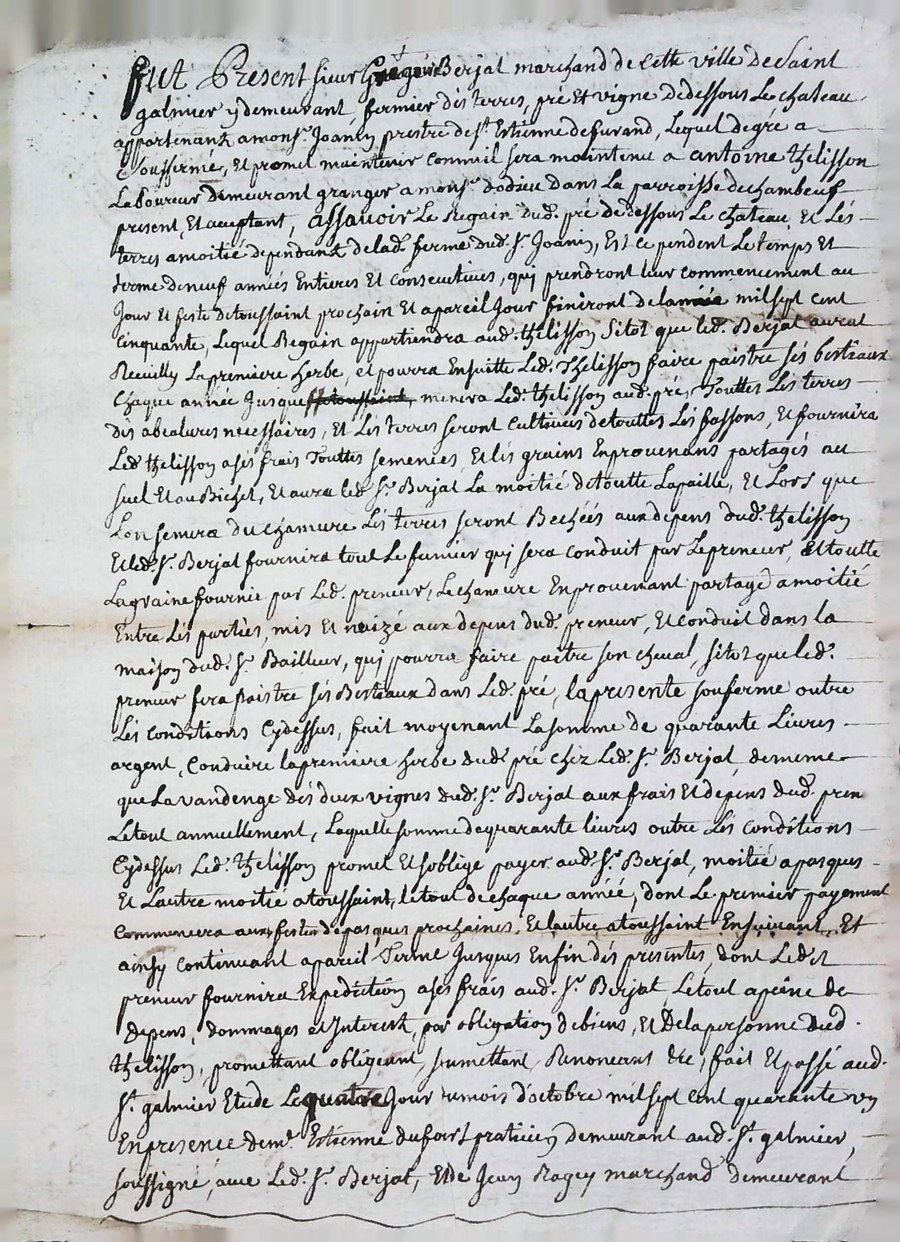 Fut Present sieur Gregoire Berjat marchand de Cette ville de Saint
galmier y demeurant, fermier des terres, pré Et vigne de dessous Le chateau
appartenant a mons.r Joanin prestre de St. Estienne de furand, Lequel de gré a
sousfermé, Et promet maintenir comm'il sera maintenu a antoine thelisson
Laboureur Demeurant granger a mons.r dodieu dans La parroisse de chambeuf
present, Et acceptant, assavoir Le Regain dud. pré de dessous Le chateau Et Les
terres a moitié dependant de lad. ferme dud. Sr. Joanin, Et ce pendent Le temps Et
terme de neuf années Entieres Et Consecutives, qui prendront leur commencement au
Jour Et feste de toussaint prochain Et a pareil Jour finiront de lannée mil sept cent
Cinquante, Lequel Regain appartiendra aud. thelisson Sitot que led. Berjat aurat
Recuilly La premiere herbe, et pourra Ensuitte Led. Thelisson faire paistre ses bestiaux
Chaque année Jusque menera Led. thelisson aud. pré, Touttes Les terres
des necessaires, Et Les terres seront Cultivées de touttes Les fassons, Et fournira
Led. thelisson a ses frais Touttes semences, Et les grains En provenans partagés au
suel Et au Bichet, Et aura led. Sr. Berjat La moitié de toutte La paille, Et Lors que
Lon semera du chamure Les terres seront Bechées aux depens dud. thelisson
Et led. Sr. Berjat fournira tout Le fumier qui sera conduit par Le preneur, Et toutte
La graine fournie par Led. preneur, Le chamure En provenant partagé a moitié
Entre Les parties, mis Et naizé aux depens dud. preneur, Et conduit dans la
maison dud. Sr. Bailleur, qui pourra faire paitre son cheval, sitot que led.
preneur fera paistre ses Bestiaux dans Led. pré, la presente sousferme outre
Les Conditions Cydessus, fait moyenant La somme de quarante Livres
argent, Conduire la premiere herbe dud. pré chez Led. Sr. Berjat, de meme
que La vandenge des deux vignes dud. Sr. Berjat aux frais Et depens dud. pren
Le tout annuellement, Laquelle somme de quarante livres outre Les conditions
Cydessus Led. thelisson promet Et soblige payer aud. Sr. Berjat, moitié a pasques
Et Lautre moitié a toussaint, le tout de chaque année, dont Le premier payement
Commencera aux festes de pasques prochaines, Et lautre a toussaint Ensuivant, Et
ainsy Continuant a pareil Terme Jusques En fin des presentes, dont Led.
preneur fournira Expedition a ses frais aud. Sr. Berjat, Le tout a peine de
depens, dommages et Interest, par obligation de biens, Et De la personne dud.
thelisson, promettant obligeant, soumettant, Renoncant &c, fait Et passé aud.
St. galmier Etude Le quatre Jour du mois d'octobre mil sept cent quarante un
En presence de m.e Estienne dufour praticien demeurant aud. St. galmier,
soussigné, avec Led. Sr. Berjat, Et de Jean Ragey marchand demeurant